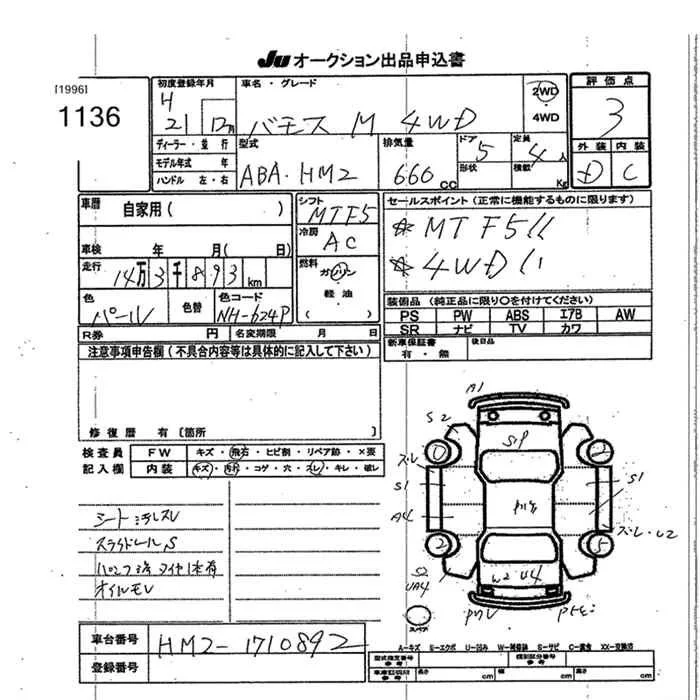 JU オークション出品申込書
[1996]
1136
初度登録年月
H
21 12月
車名・グレード
バモス M 4WD
2WD
・
4WD
評価点
3
ディーラー・並行
モデル年式 年
ハンドル 左・右
型式
ABA・HM2
排気量
660 cc
ドア
5
形状
定員
4人
積載 Kg
外装 内装
D C
車歴 自家用( )
シフト
MTF5
冷房
AC
セールスポイント(正常に機能するものに限ります)
☆ MT F5!!
☆ 4WD!!
車検 年 月(日)
走行
14万3千893km
燃料
ガソリン
・
軽油
( )
色
パール
色替
色コード
NH-624P
装備品(純正品に限り○を付けてください)
PS PW ABS エアB AW
SR ナビ TV カワ
R券 円 名変期限 月 日
新車保証書
有・無
後日品
注意事項申告欄(不具合内容等は具体的に記入して下さい)
修復歴 有〔箇所 〕
検査員
記入欄
FW キズ・飛石・ヒビ割・リペア跡・×要
内装 キズ・汚れ・コゲ・穴・スレ・キレ・破レ
シート汚レスレ
スライドレールS
パンク済タイヤ1本有
オイルモレ
A1
S2
SP
0 2
スレ
S1 S1
A4
スレ・U2
2 5
S2
UA4
W2 U4
スペア
A-キズ E-エクボ U-凹み W-補修跡 S-サビ C-腐食 XX-交換済
車台番号 HM2-1710892
登録番号
型式指定番号
参考
類別区分番号
参考
車庫証明用
参考
長さ cm 幅 cm 高さ cm